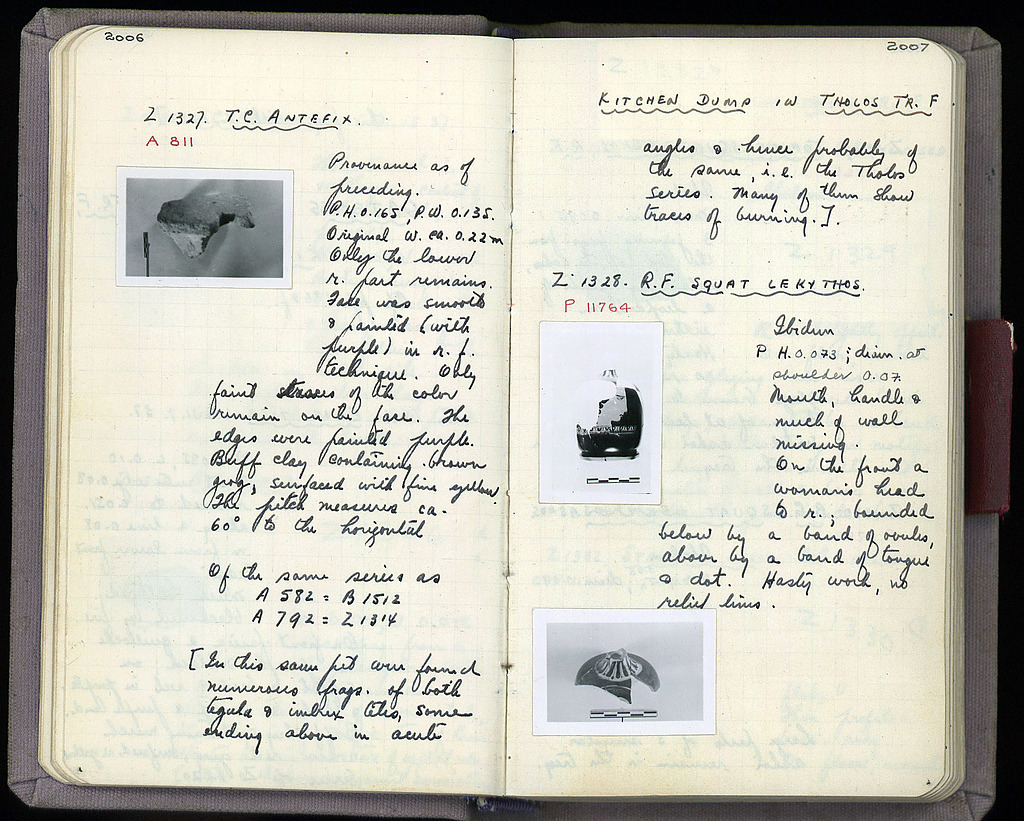 2006
Z 1327. T.C. ANTEFIX.
A 811
Provenance as of
preceding.
P.H. 0.165. P.W. 0.135.
Original W. ca. 0.22m
Only the lower
r. part remains.
Face was smooth
& painted (with
purple) in r. f.
technique. Only
faint traces of the color
remain on the face. The
edges were painted purple.
Buff clay containing brown
grog, surfaced with fine yellow.
The pitch measures ca.
60° to the horizontal
Of the same series as
A 582 = B 1512
A 792 = Z 1314
[In this same pit were found
numerous frags. of both
tegula & imbrex tiles, some
ending above in acute
2007
KITCHEN DUMP IN THOLOS TR. F
angles & hence probably of
the same, i.e. the Tholos
series. Many of them show
traces of burning.].
Z 1328. R.F. SQUAT LEKYTHOS.
P 11764
Ibidem
P H. 0.073; diam. at
shoulder 0.07.
Mouth, handle &
much of wall
missing.
On the front a
woman's head
to r.; bounded
below by a band of ovules,
above by a band of tongue
& dot. Hasty work, no
relief lines.